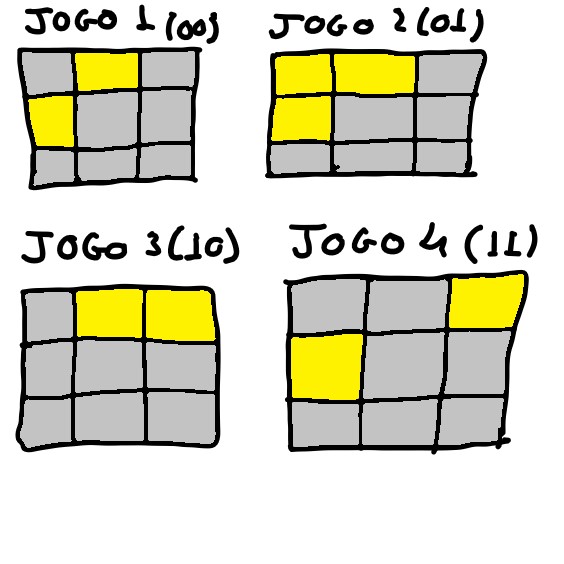 JOGO 1 (00)
JOGO 2 (01)
JOGO 3 (10)
JOGO 4 (11)